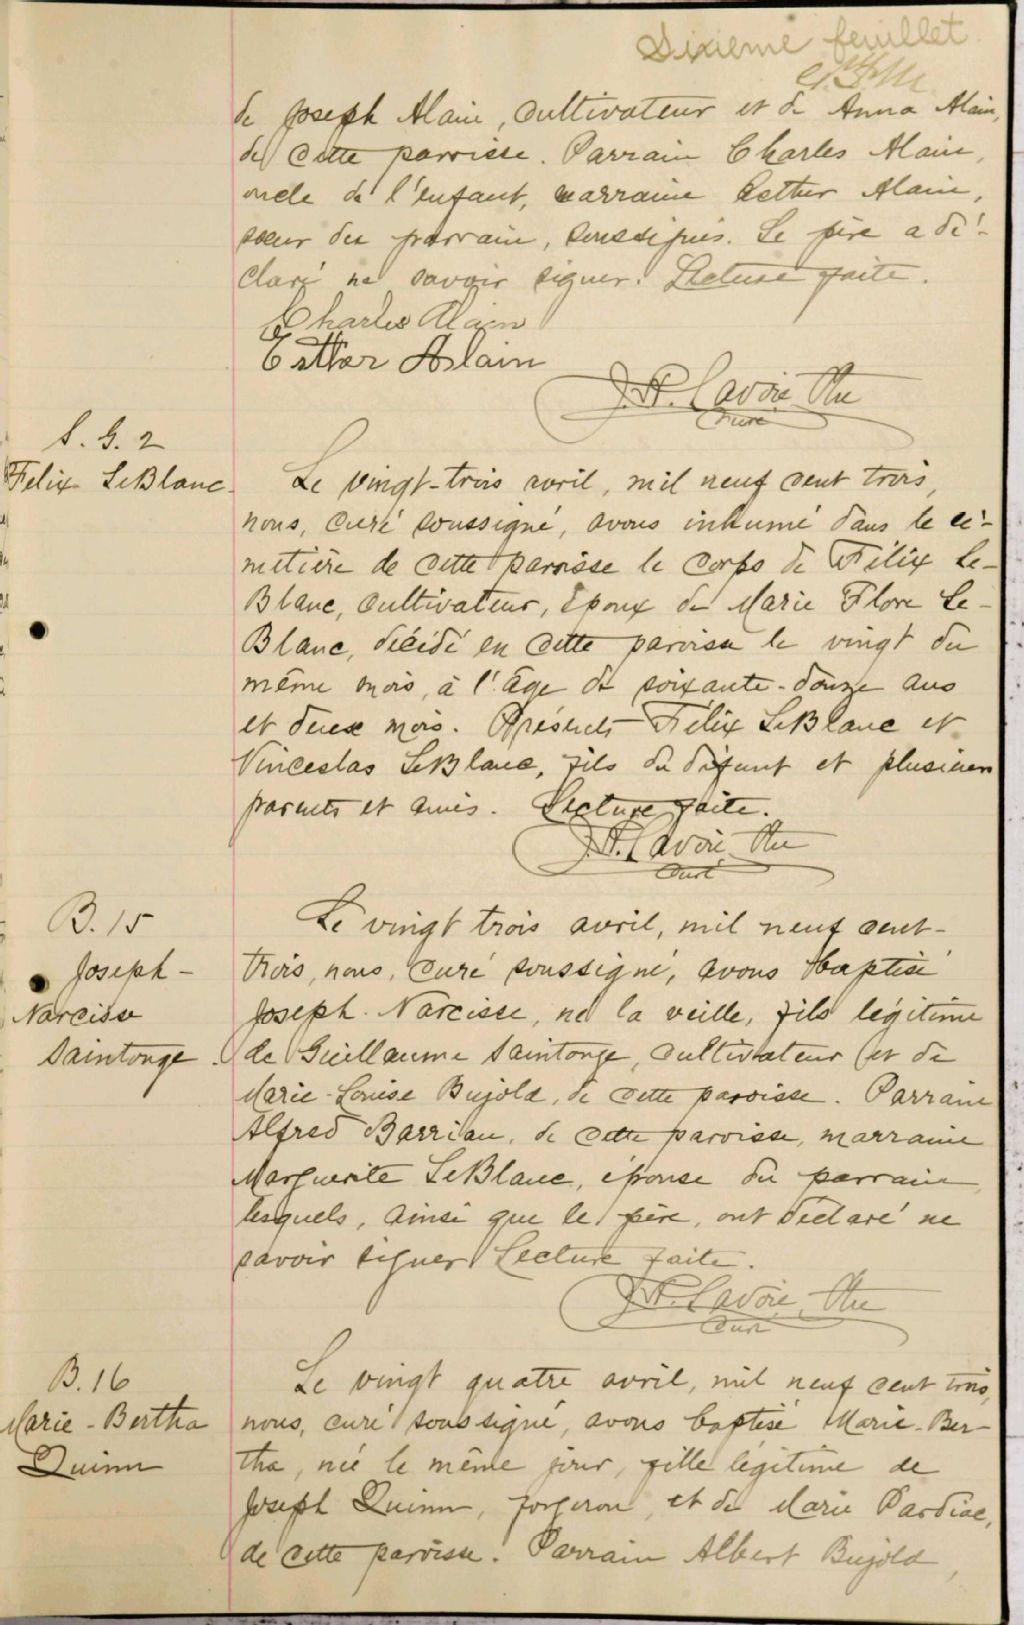 Sixième feuillet
de Joseph Alain, cultivateur et de Anna Alain,
de cette paroisse. Parrain Charles Alain,
oncle de l'enfant, marraine Esther Alain,
sœur du parrain, soussignés. Le père a dé-
claré ne savoir signer. Lecture faite.
Charles Alain
Esther Alain
J.A. Lavoie Ptre
Curé
S. G. 2
Felix LeBlanc
Le vingt-trois avril, mil neuf cent trois,
nous, curé soussigné, avons inhumé dans le ci-
metière de cette paroisse le corps de Félix Le-
Blanc, cultivateur, époux de Marie Flore Le-
Blanc, décédé en cette paroisse le vingt du
même mois, à l'âge de soixante-douze ans
et deux mois. Présents Félix LeBlanc et
Vinceslas LeBlanc, fils du défunt et plusieurs
parents et amis. Lecture faite.
J.A. Lavoie Ptre
curé
B. 15
Joseph-
Narcisse
Saintonge
Le vingt trois avril, mil neuf cent-
trois, nous, curé soussigné, avons baptisé
Joseph Narcisse, né la veille, fils légitime
de Guillaume Saintonge, cultivateur et de
Marie-Louise Bujold, de cette paroisse. Parrain
Alfred Barriau, de cette paroisse, marraine
Marguerite LeBlanc, épouse du parrain
lesquels, ainsi que le père, ont déclaré ne
savoir signer Lecture faite.
J.A. Lavoie, Ptre
Curé
B. 16
Marie-Bertha
Quinn
Le vingt quatre avril, mil neuf cent trois,
nous, curé soussigné, avons baptisé Marie-Ber-
tha, née le même jour, fille légitime de
Joseph Quinn, forgeron, et de Marie Pardiac,
de cette paroisse. Parrain Albert Bujold,